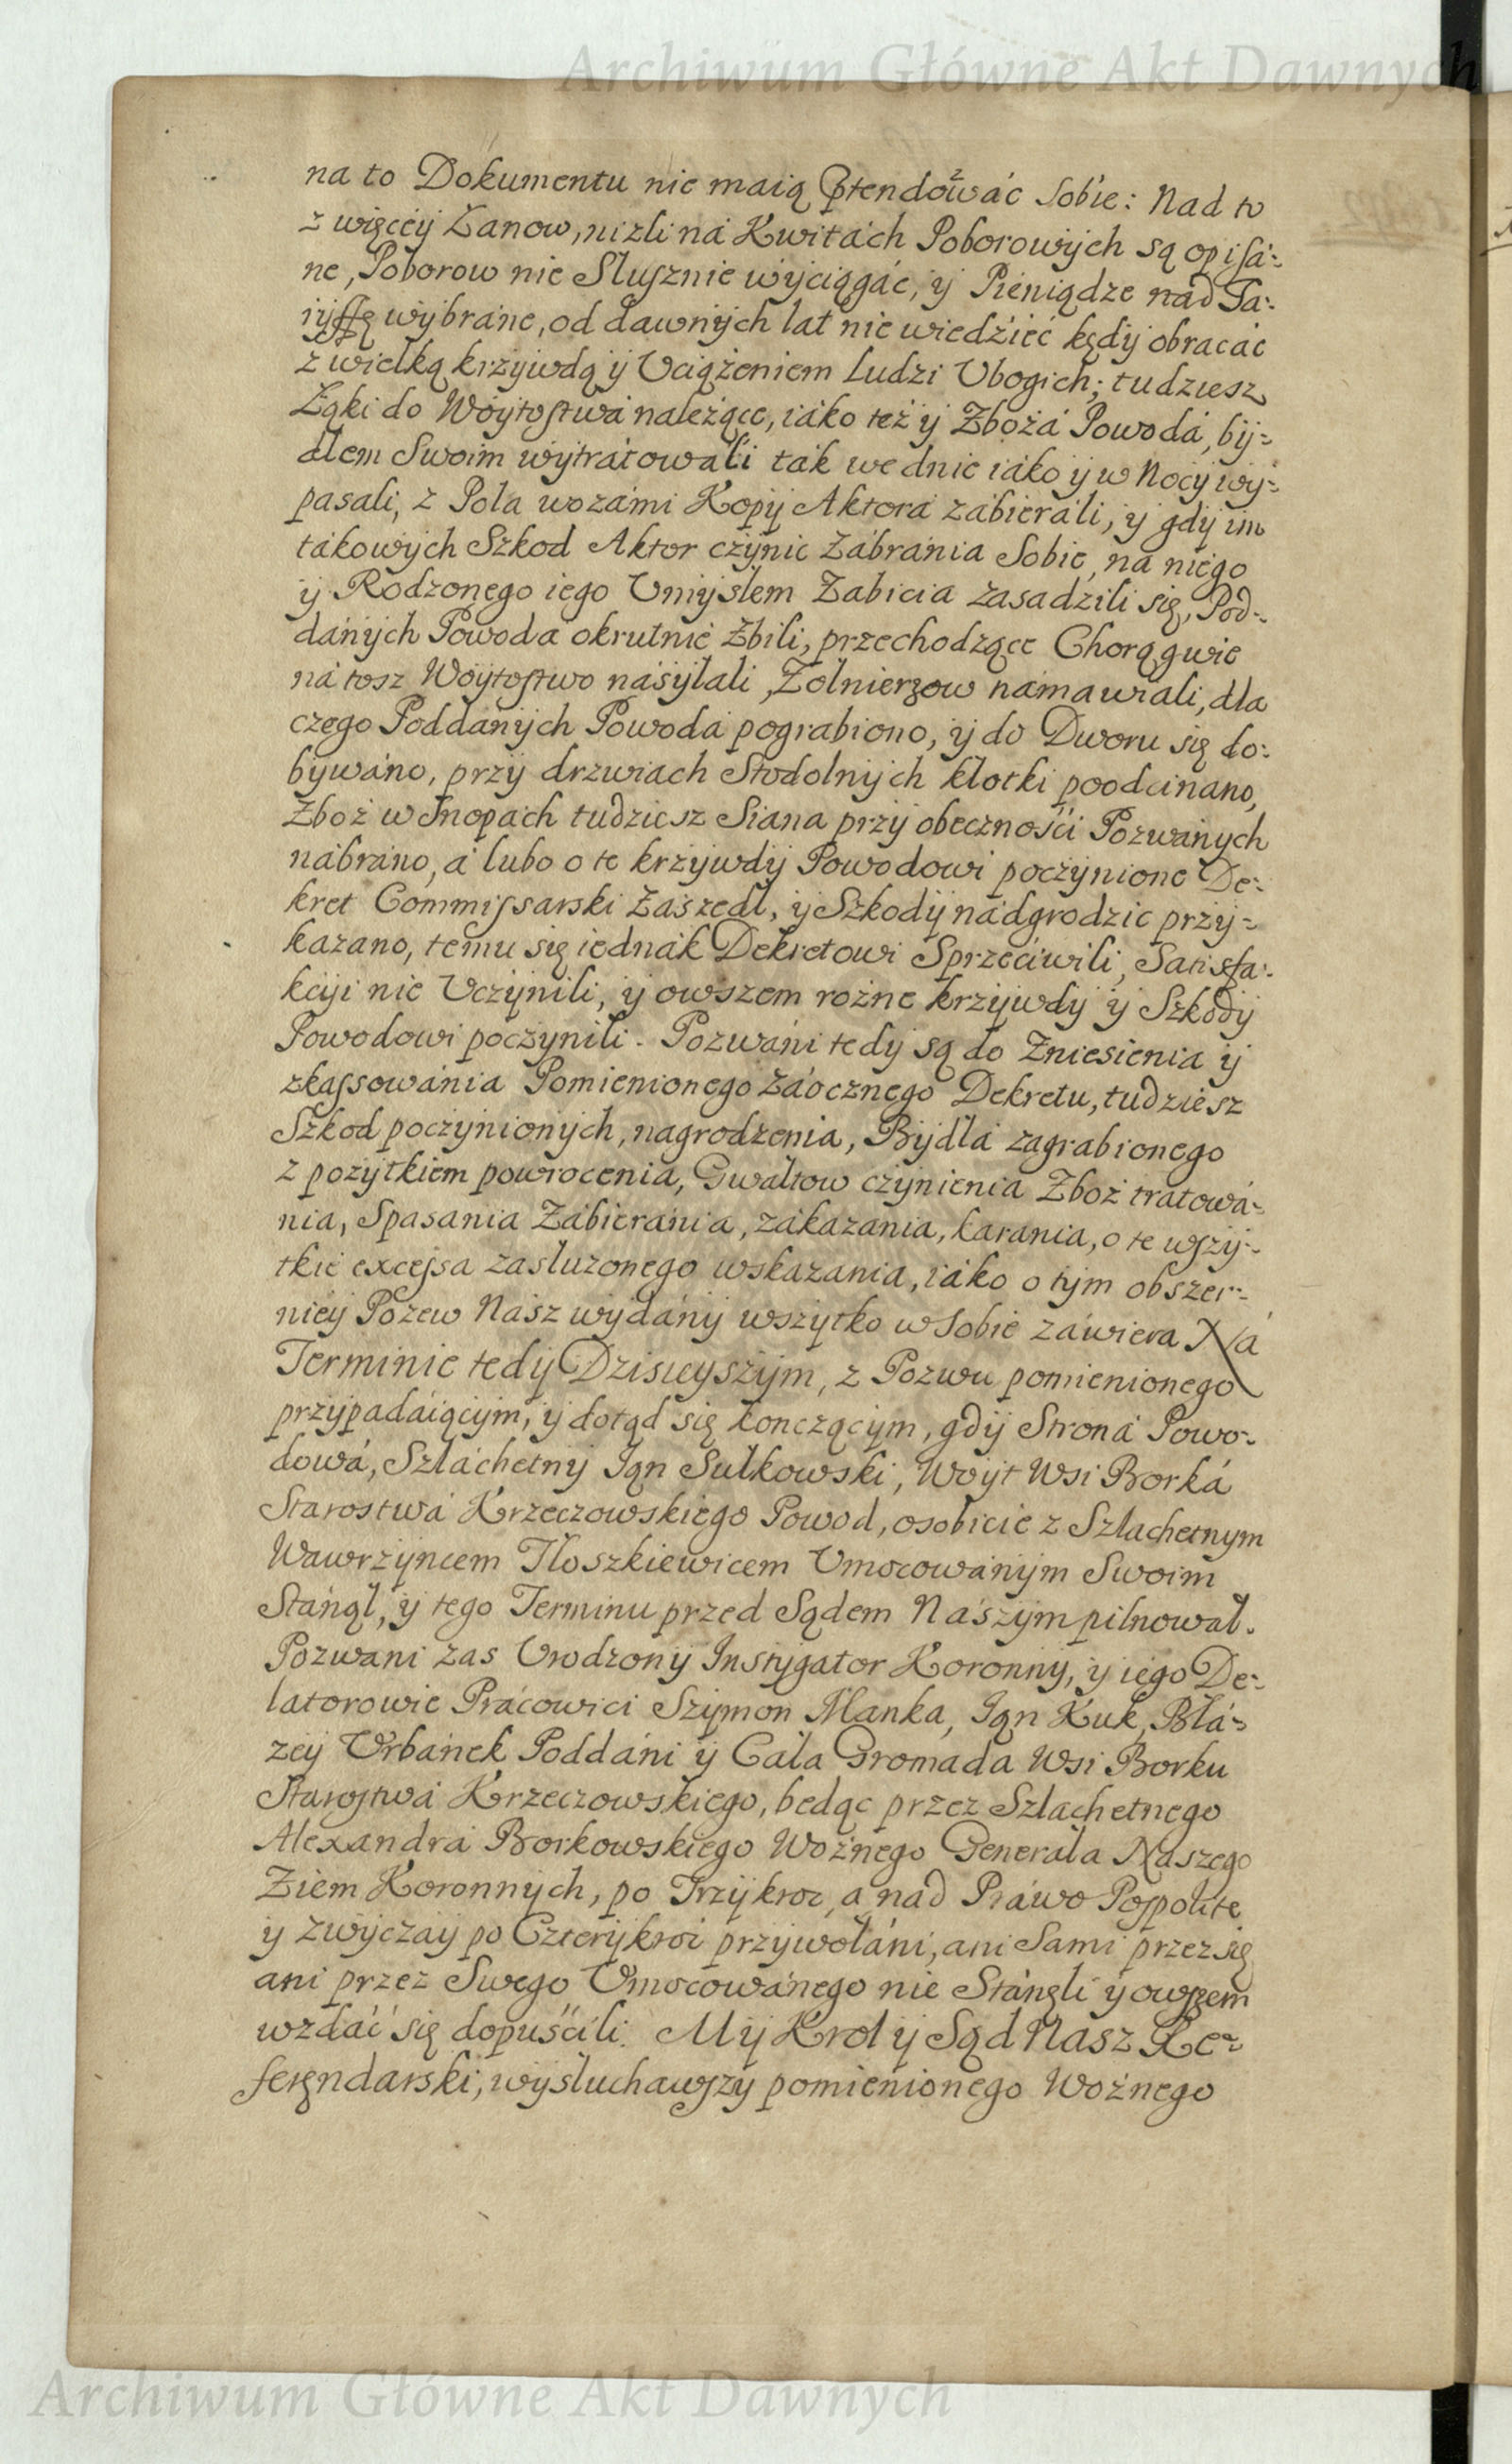 Archiwum Główne Akt Dawnych
na to Dokumentu nie maią Ptendować sobie: Nad to
z więcey Łanow, nizli ná Kwitách Poborowych są opisá-
ne, Poborow nie Slusznie wyciągáć, y Pieniądze nad Ta-
ryffę wybráne, od dawnych lat nie wiedzieć kędy obracáć
z wielką krzywdą y Vciążeniem Ludzi Vbogich; tudziesz
Łąki do Woytostwá należące, iáko też y Zbożá Powodá, by-
dlem Swoim wytrátowáli ták we dnie iáko y w Nocy wy-
pasali, z Pola wozámi Kopy Aktorá zábieráli, y gdy im
tákowych Szkod Aktor czynić Zábrania Sobie, na niego
y Rodzonego iego Vmyslem Zabicia zasadzili się, Pod-
dánych Powodá okrutnie zbili, przechodzące Chorągwie
ná tosz Woytostwo násyłali, Zolnierzow námawiali, dla
czego Poddánych Powodá pograbiono, y do Dworu się do-
bywáno, przy drzwiach Stodolnych klotki poodcinano,
Zboż w Snopach tudziesz Siana przy obecznośći Pozwánych
nábráno, á lubo o te krzywdy Powodowi poczynione De-
kret Commissarski Zászedl, y Szkody nádgrodzić przy-
kazano, temu się iednák Dekretowi Sprzećiwili, Satisfa-
kcyi nie Vczynili, y owszem rożne krzywdy y Szkody
Powodowi poczynili. Pozwáni tedy są do Zniesienia y
zkassowánia Pomienionego Záocznego Dekretu, tudziesz
Szkod poczynionych, nagrodzenia, Bydlá zagrabionego
z pożytkiem powrocenia, Gwaltow czynienia Zboż tratowá-
nia, Spasania Zábieránia, zákazania, karania, o te wszy-
tkie excessa zasluzonego wskazania, iáko o tym obszer-
niey Pozew Nász wydány wszytko w Sobie záwiera Ná
Terminie tedy Dzisieyszym, z Pozwu pomienionego
przypadáiącym, y dotąd się konczącym, gdy Strona Powo-
dowá, Szláchetny Ian Sulkowski, Woyt Wsi Borká
Starostwá Krzeczowskiego Powod, osobiscie z Szlachetnym
Wawrzyncem Tloszkiewicem Vmocowánym Swoim
Stánąl, y tego Terminu przed Sądem Nászym pilnowal.
Pozwani zas Vrodzony Instygator Koronny, y iego De-
latorowie Prácowici Szymon Manka, Ian Kuk, Błá-
zey Vrbánek Poddáni y Cala Gromada Wsi Borku
Starostwá Krzeczowskiego, będąc przez Szlachetnego
Alexandrá Borkowskiego Woźnego Generála Naszego
Ziem Koronnych, po Trzykroc, a nad Práwo Pospolite
y zwyczáy po Czterykroć przywołáni, ani Sami przez się
ani przez Swego Vmocowánego nie Stánęli y owszem
wzdáć się dopuśćili. My Krol y Sąd Nasz Re-
ferendarski, wysluchawszy pomienionego Woźnego
Archiwum Główne Akt Dawnych